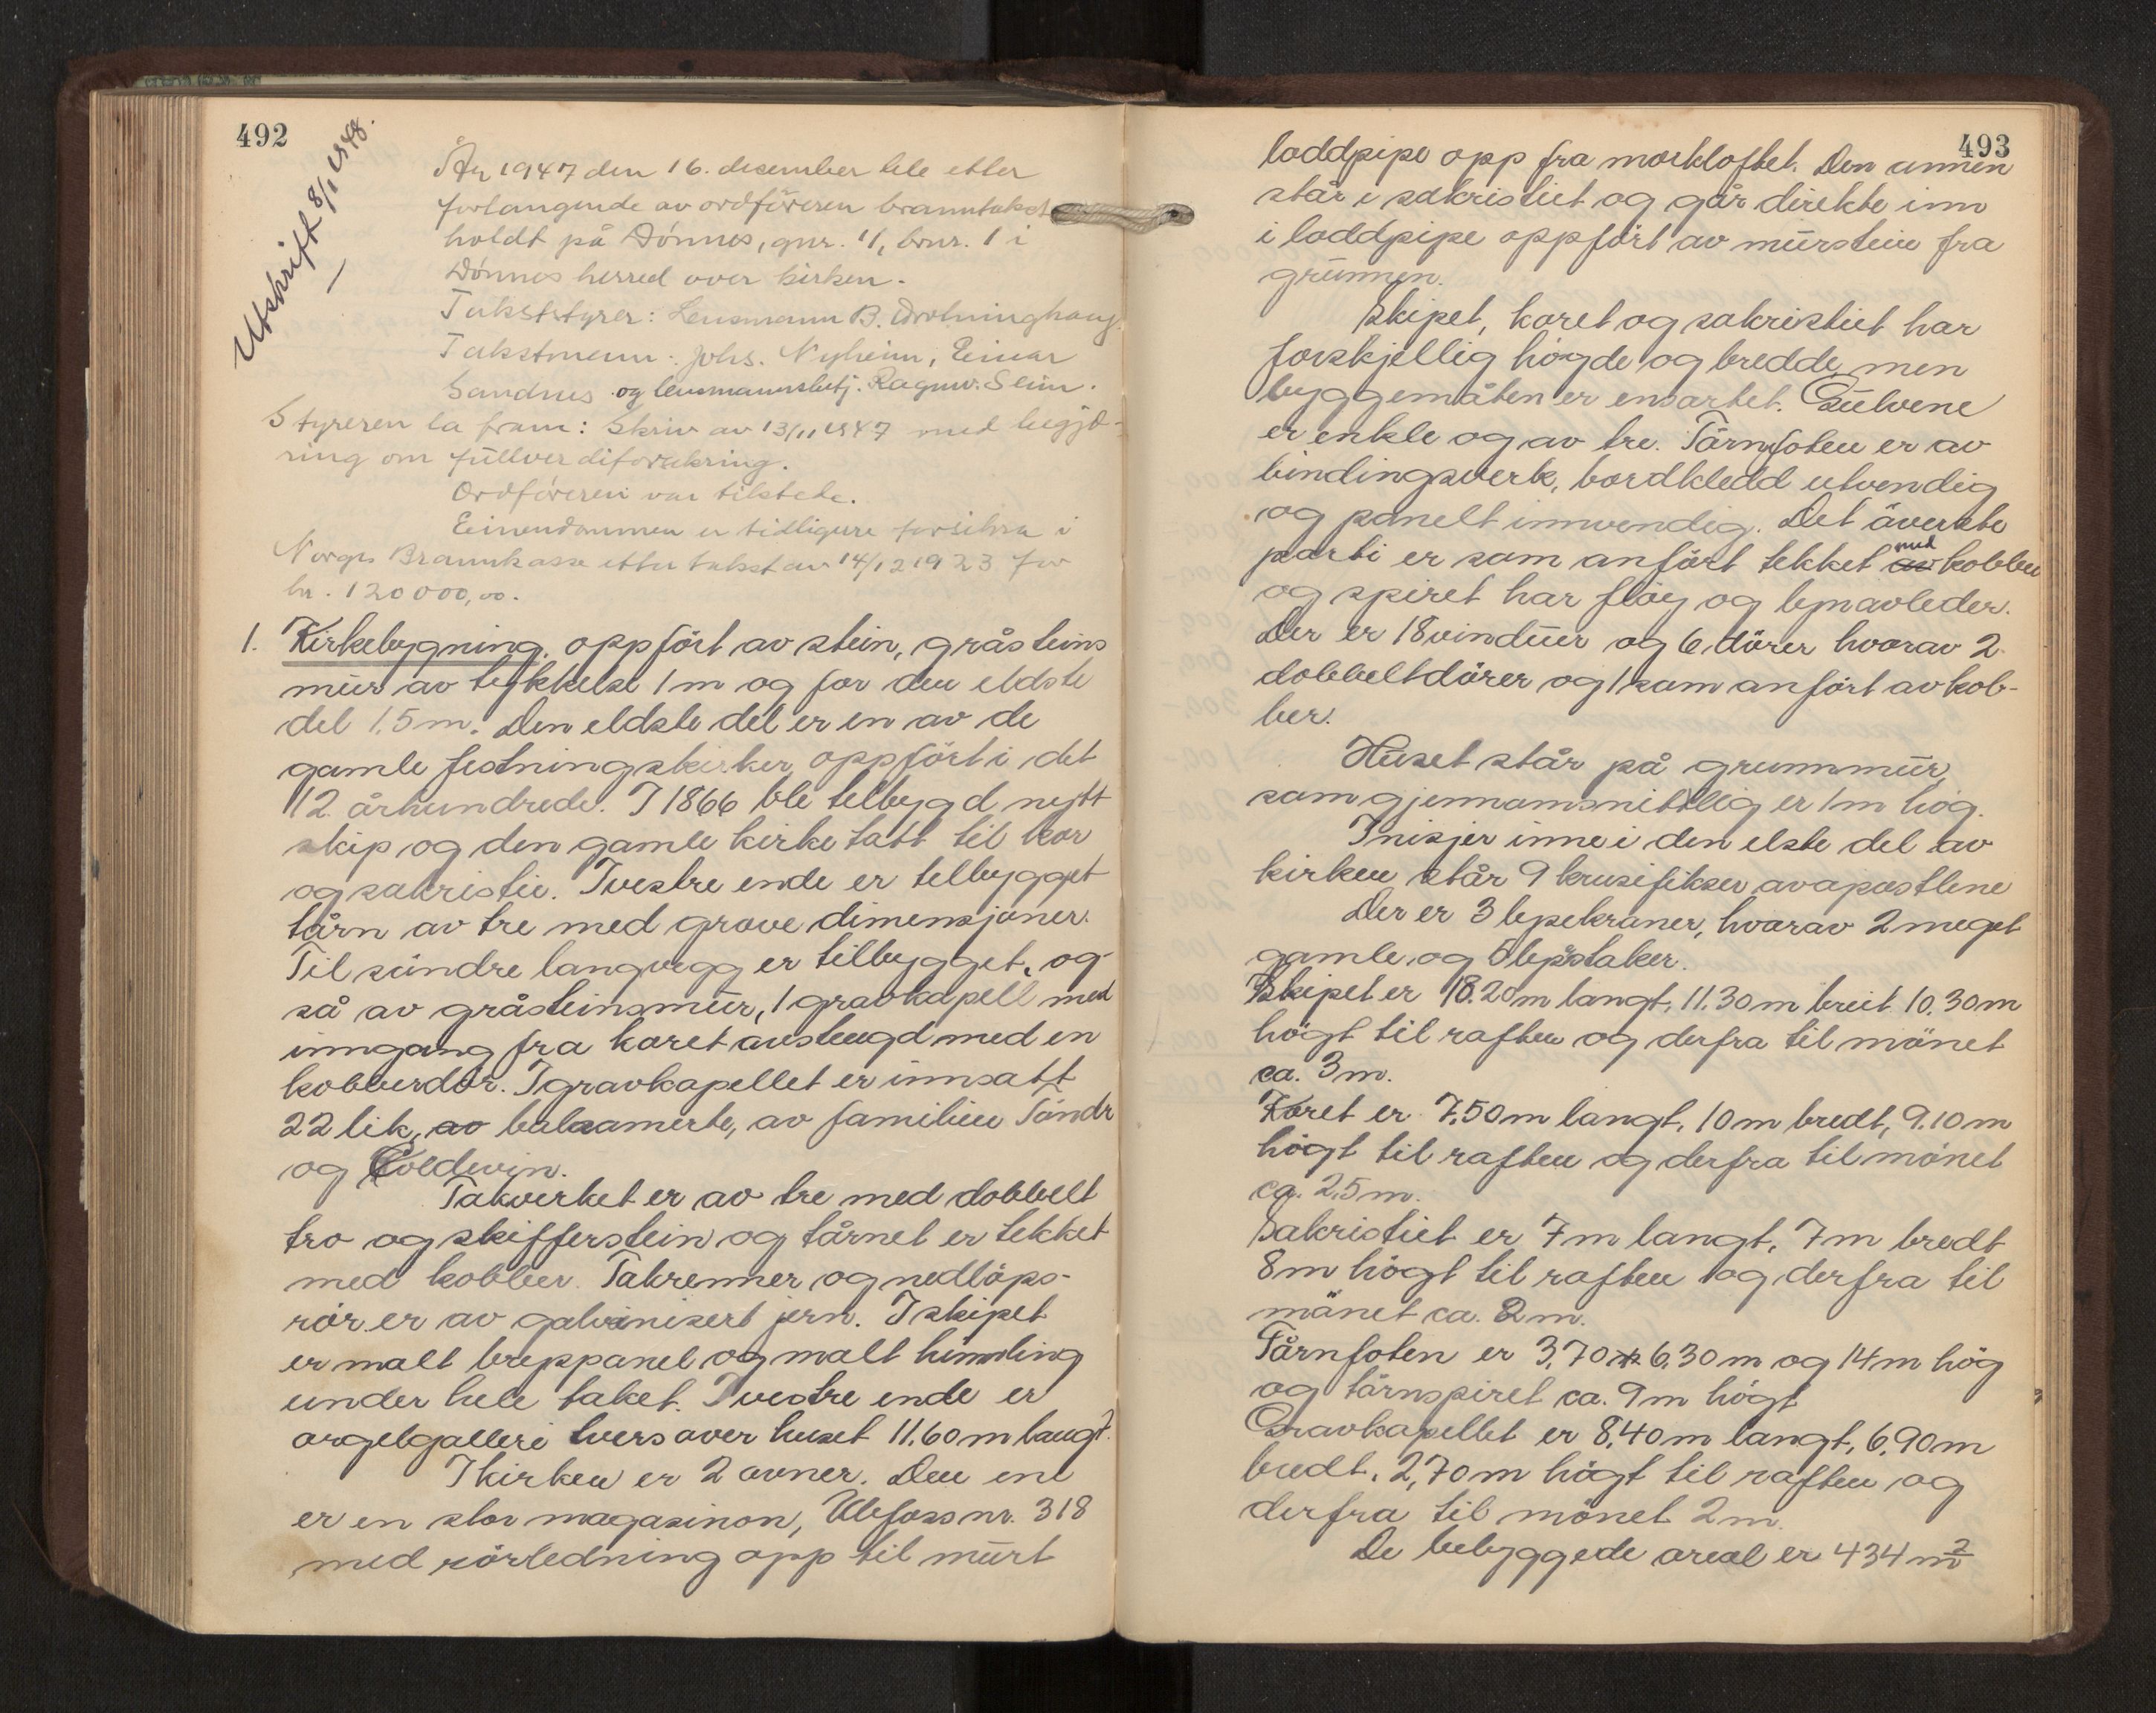 492
Utskrift 8/1 1948.
År 1947 den 16. desember ble etter
forlangende av ordföreren branntakst
holdt på Dönnes, gnr. 11, bnr. 1 i
Dönnes herred over kirken.
Takststyrer: Lensmann B. Drotninghaug.
Takstmenn: Johs. Nyheim, Einar
Sandnes og lensmannsbetj. Ragnv. Slim.
Styreren la fram: Skriv av 13/11 1947 med begjæ-
ring om fullverdiforsikring.
Ordföreren var tilstede.
Eiendommen er tidligere forsikra i
Norges Brannkasse etter takst av 14/12 1923 for
kr. 120 000,00.
1. Kirkebygning, oppfört av stein, gråsteins
mur av tykkelse 1 m og for den eldste
del 1.5 m. Den eldste del er en av de
gamle festningskirker oppfört i det
12. århundrede. I 1866 ble tilbygd nytt
skip og den gamle kirke tatt til kor
og sakristie. I vestre ende er tilbygget
tårn av tre med grove dimensjoner.
Til söndre langvegg er tilbygget, og-
så av gråsteinsmur, 1 gravkapell med
inngang fra koret avstengd med en
kobberdör. I gravkapellet er innsatt
22 lik, av balsamerte, av familien Töndr
og Coldevin.
Takverket er av tre med dobbelt
tro og skifferstein og tårnet er tekket
med kobber. Takrenner og nedlöps-
rör er av galvinisert jern. I skipet
er malt brystpanel og malt himling
under hele taket. I vestre ende er
orgelgalleri tvers over huset 11.60 m langt.
I kirken er 2 ovner. Den ene
er en stor magasinon, Ulefoss nr. 318
med rörledning opp til murt
493
loddpipe opp fra mörkloftet. Den annen
står i sakristiet og går direkte inn
i loddpipe oppfört av murstein fra
grunnen.
Skipet, koret og sakristiet har
forskjellig högde og bredde, men
byggemåten er ensartet. Gulvene
er enkle og av tre. Tårnfoten er av
bindingsverk, bordkledd utvendig
og panelt innvendig. Det överste
parti er som anfört tekket av med kobber
og spiret har flöy og lynavleder.
Der er 18 vinduer og 6 dörer hvorav 2
dobbeltdörer og 1 som anfört av kob-
ber.
Huset står på grunnmur,
som gjennomsnittlig er 1 m hög.
I nisjer inne i den elste del av
kirken står 9 krusifikser av apostlene
Der er 3 lysekroner, hvorav 2 meget
gamle og 5 lysstaker.
Skipet er 18.20 m langt, 11.30 m breit 10.30 m
högt til raften og derfra til mönet
ca. 3 m.
Koret er 7.50 m langt, 10 m bredt, 9.10 m
högt til raften og derfra til mönet
ca. 2,5 m.
Sakristiet er 7 m langt, 7 m bredt
8 m högt til raften og derfra til
mönet ca. 2 m.
Tårnfoten er 3,70 x 6,30 m og 14 m hög
og tårnspiret ca. 9 m högt
Gravkapellet er 8,40 m langt, 6,90 m
bredt, 2,70 m högt til raften og
derfra til mönet 2 m.
De bebyggede areal er 434 m²